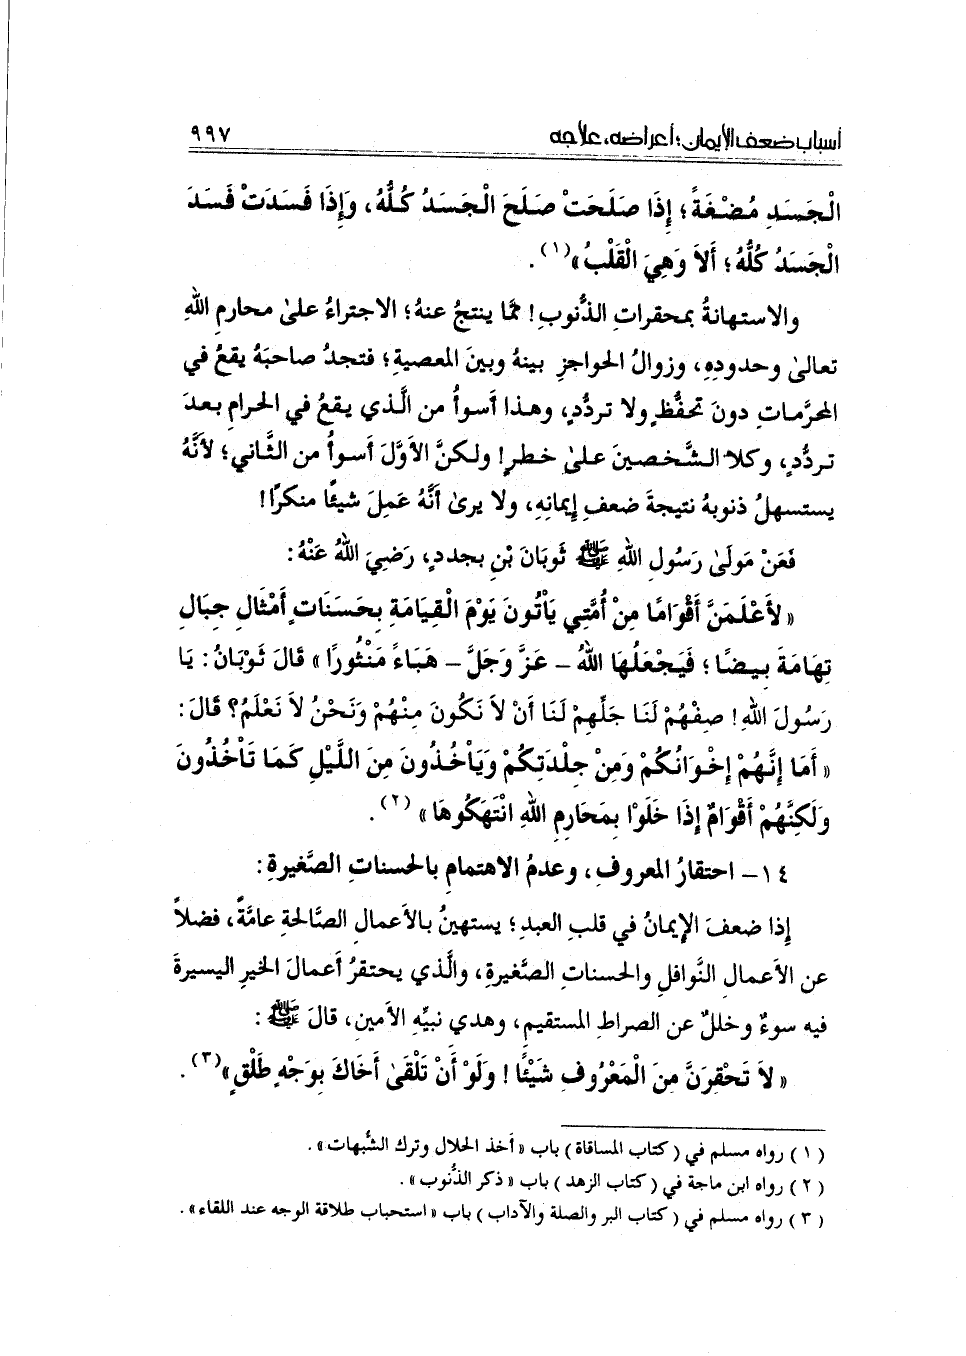 أسباب ضعف الإيمان؛ أعراضه، علاجه ٩٩٧
الْجَسَدِ مُضْغَةً؛ إِذَا صَلَحَتْ صَلَحَ الْجَسَدُ كُلُّهُ، وَإِذَا فَسَدَتْ فَسَدَ
الْجَسَدُ كُلُّهُ؛ أَلاَ وَهِيَ الْقَلْبُ»(١).
والاستهانةُ بمحقراتِ الذُّنوبِ! مَّما ينتجُ عنهُ؛ الاجتراءُ على محارمِ اللهِ
تعالىٰ وحدودِهِ، وزوالُ الحواجزِ بينهُ وبينَ المعصيةِ؛ فتجدُ صاحبَهُ يقعُ في
المحرَّماتِ دونَ تحفُّظٍ ولا تردُّدٍ، وهـذا أسوأُ من الَّذي يـقعُ في الحرامِ بعـدَ
تردُّدٍ، وكلا الشَّخصينَ علىٰ خطرٍ! ولكنَّ الأوَّلَ أسوأُ من الثَّاني؛ لأنَّهُ
يستسهلُ ذنوبهُ نتيجةَ ضعفِ إيمانِهِ، ولا يرىٰ أنَّهُ عَمِلَ شيئًا منكرًا!
فَعَنْ مَولَىٰ رَسُولِ اللهِ ﷺ ثَوبَانَ بْنِ بجددٍ، رَضِيَ اللهُ عَنْهُ:
«لأَعْلَمَنَّ أَقْوَامًا مِنْ أُمَّتِي يَأْتُونَ يَوْمَ الْقِيَامَةِ بِحَسَنَاتٍ أَمْثَالِ جِبَالِ
تِهَامَةَ بِيـضًا؛ فَيَجْعَلُهَا اللهُ – عَزَّ وَجَلَّ – هَبَاءً مَنْثُورًا» قَالَ ثَوْبَانُ: يَا
رَسُولَ اللهِ! صِفْهُمْ لَنَا جَلِّهِمْ لَنَا أَنْ لاَ نَكُونَ مِنْهُمْ وَنَحْنُ لاَ نَعْلَمُ؟ قَالَ:
«أَمَا إِنَّهُمْ إِخْوَانُكُمْ وَمِنْ جِلْدَتِكُمْ وَيَأْخُذُونَ مِنَ اللَّيْلِ كَمَا تَأْخُذُونَ
وَلَكِنَّهُمْ أَقْوَامٌ إِذَا خَلَوْا بِمَحَارِمِ اللهِ انْتَهَكُوهَا»(٢).
١٤– احتقارُ المعروفِ، وعدمُ الاهتمامِ بالحسناتِ الصَّغيرةِ:
إذا ضعفَ الإيمانُ في قلبِ العبدِ؛ يستهينُ بالأعمالِ الصَّالحةِ عامَّةً، فضلاً
عن الأعمالِ النَّوافلِ والحسناتِ الصَّغيرةِ، والَّذي يحتقرُ أعمالَ الخيرِ اليسيرةَ
فيه سوءٌ وخللٌ عن الصراطِ المستقيمِ، وهدي نبيِّهِ الأمينِ، قالَ ﷺ:
«لاَ تَحْقِرَنَّ مِنَ الْمَعْرُوفِ شَيْئًا! وَلَوْ أَنْ تَلْقَىٰ أَخَاكَ بِوَجْهٍ طَلْقٍ»(٣).
(١) رواه مسلم في (كتاب المساقاة) باب «أخذ الحلال وترك الشُّبهات».
(٢) رواه ابن ماجة في (كتاب الزهد) باب «ذكر الذُّنوب».
(٣) رواه مسلم في (كتاب البر والصلة والآداب) باب «استحباب طلاقة الوجه عند اللقاء».